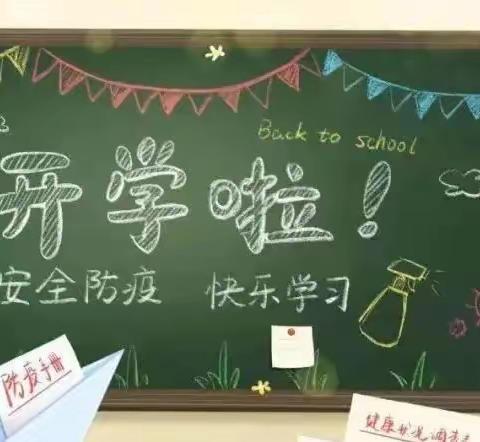 Back to school
开学啦！
安全防疫 快乐学习
防疫手册
健康状况调查